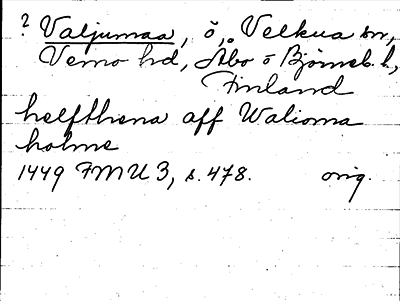 ? Valjumaa, ö, Velkua sn,
Vemo hd, Åbo o Björneb. l,
Finland
helfthena aff Walioma
holme
1449 FMU 3, s. 478. orig.